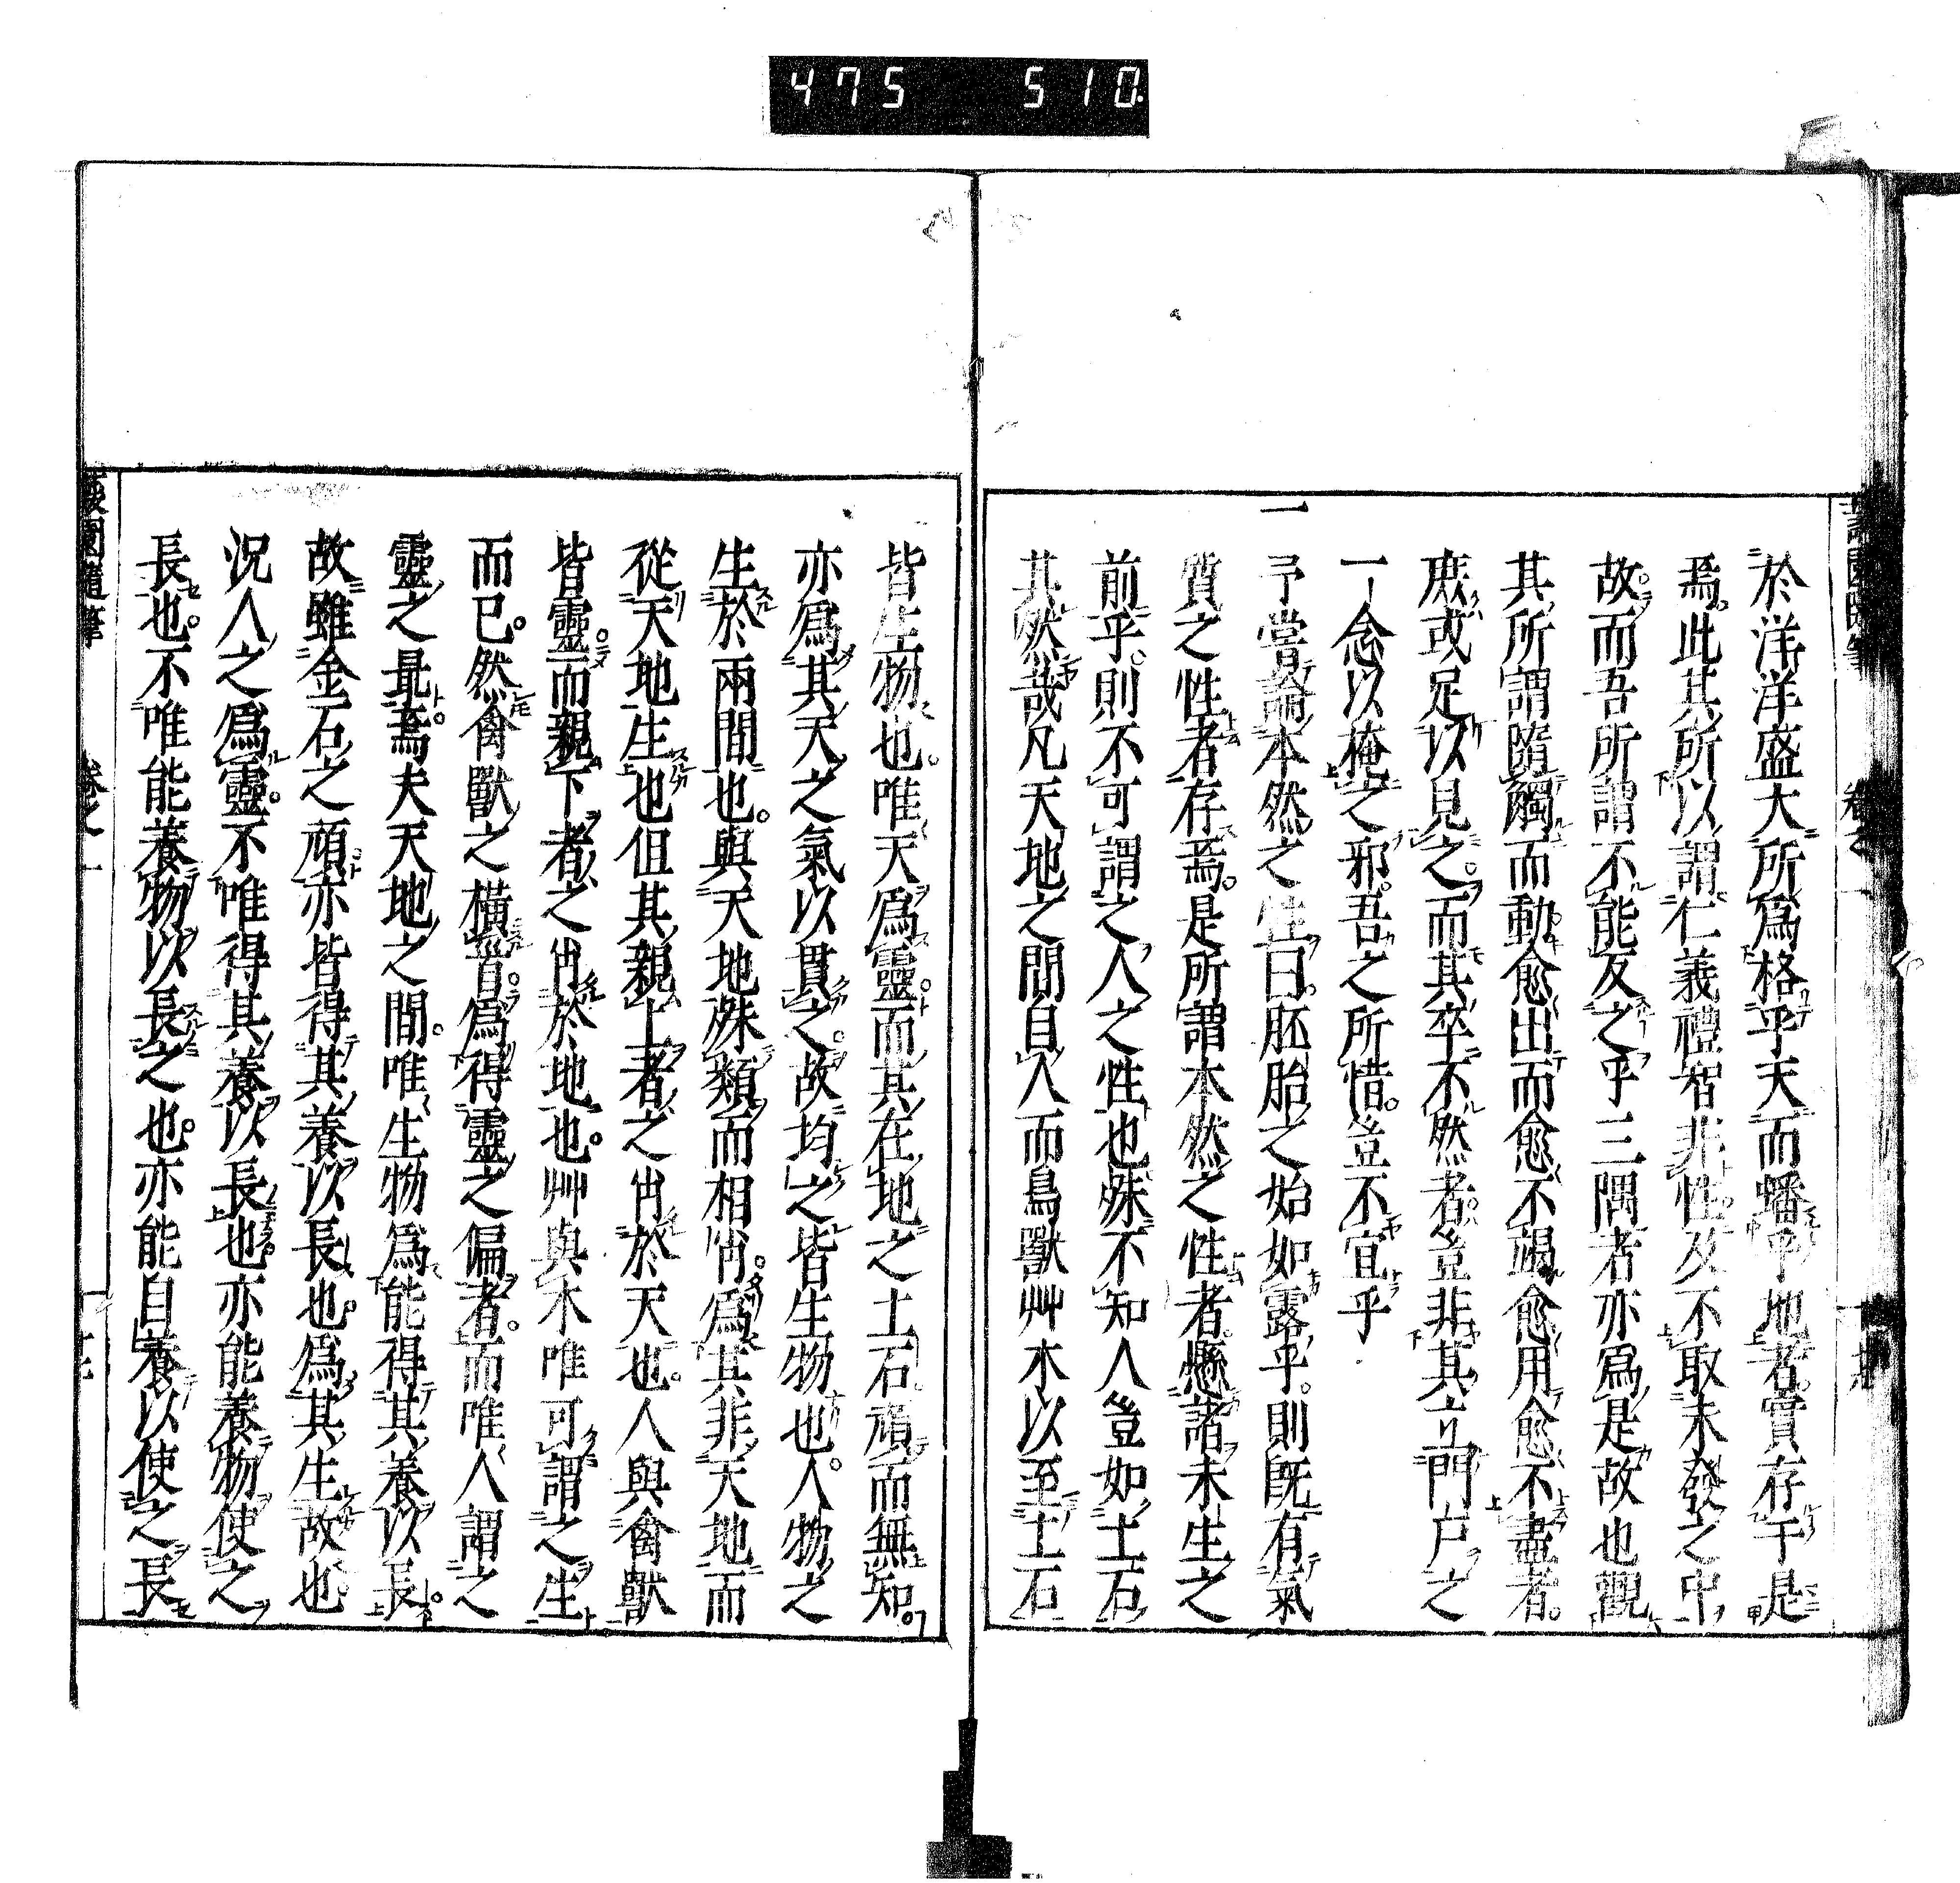 475 510
於洋洋盛大所爲格乎天而蟠乎地者實存于是
焉。此其所以謂仁義禮智非性及不取未發之中
故。而吾所謂不能反之乎三隅者亦爲是故也觀
其所謂隨觸而動愈出而愈不竭愈用愈不盡者。
庶或足以見之。而其卒不然者豈非其立門戶之
一念以掩之邪。吾之所惜。豈不宜乎
一予嘗論本然之性曰。胚胎之始如露乎。則旣有氣
質之性者存焉。是所謂本然之性者懸諸未生之
前乎。則不可謂之人之性也殊不知人豈如土石
其然哉凡天地之間自人而鳥獸艸木以至土石
皆生物也。唯天爲靈。而其在地之土石。頑而無知。
亦爲其天之氣以貫之。故均之皆生物也。人物之
生於兩間也。與天地殊類而相肖。爲其非天地而
從天地生也但其親上者之肖於天也。人與禽獸
皆靈。而親下者之肖於地也。艸與木唯可謂之生
而已。然禽獸之橫首。爲得靈之偏者。而唯人謂之
靈之最焉。夫天地之間。唯生物爲能得其養以長。
故雖金石之頑亦皆得其養以長也。爲其生故也
況人之爲靈。不唯得其養以長也亦能養物使之
長也。不唯能養物以長之也。亦能自養以使之長
蘐園隨筆 卷之一